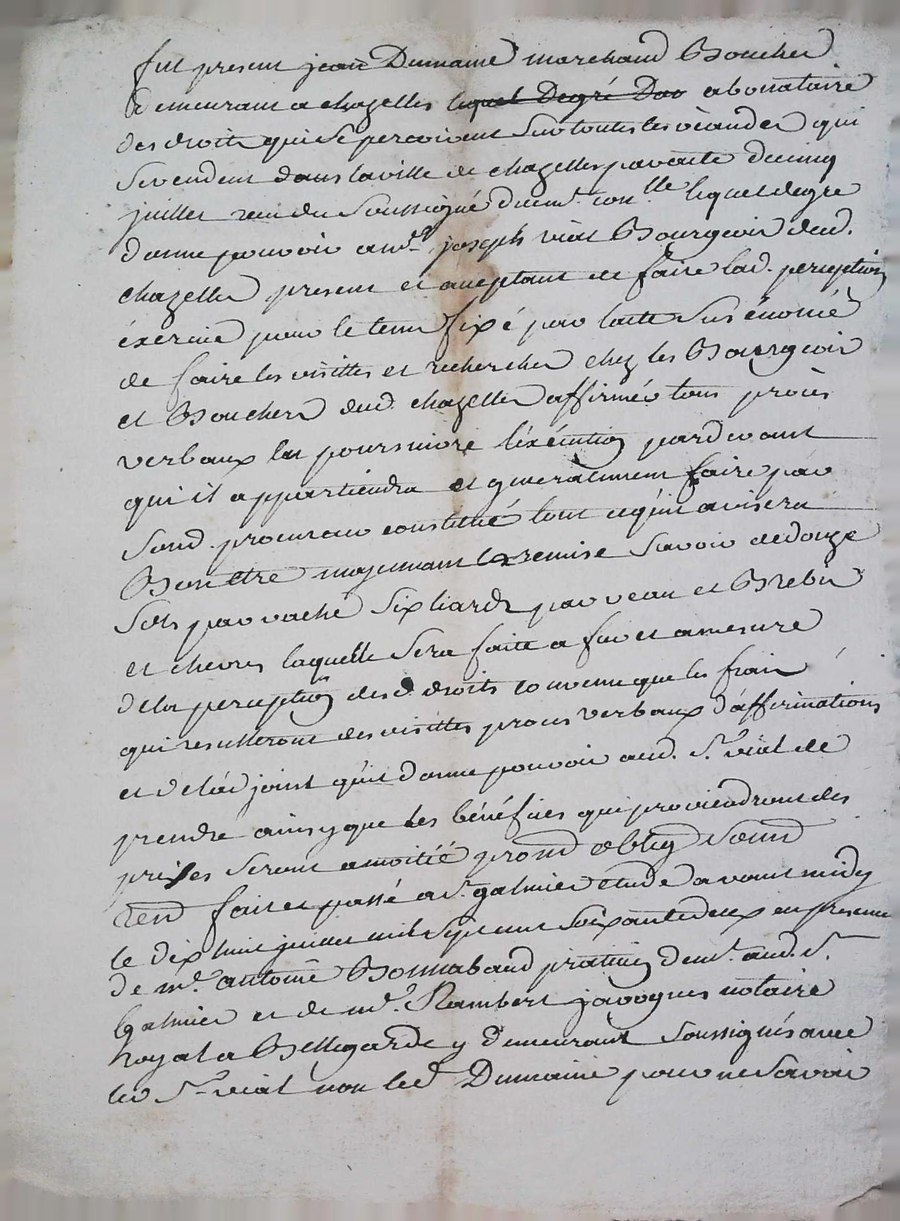 fut present jean Dumaine marchand Boucher
demeurant a chazelles lequel Degré Don abonataire
des droits qui se percoivent sur toutes les viandes qui
se vendent dans la ville de chazelles par acte du cinq
juillet recu du soussigné duem.t con.lle lequel degre
donne pouvoir a m.e joseph viat Bourgeois dud.
chazelles present et aceptant de faire lad. perception
éxercice pour le tems fixé par lacte sus énoncé
de faire les visittes et recherches chez les Bourgeois
et Bouchers dud. chazelles affirmer tous procès
verbaux en poursuivre l'éxécution pardevant
qui il appartiendra et generalement faire par
sond. procureur constitué tout ce qu'il avisera
Bon etre moyennant la remise savoir de douze
sols par vache six liards par veau et Brebis
et chevres laquelle sera faite a fur et a mesure
de la perception des d. droits convenu que les frais
qui resulteront des visittes proces verbaux d'affirmations
et de lad joint qu'il donne pouvoir aud. s.r viat de
prendre ainsy que les bénéfices qui proviendront des
prises seront a moitié prom oblig soum
ren fait et passé a s.t galmier étude avant midy
le dix huit juillet mil sept cent soixante deux en presence
de m.e antoine Bonnabaud praticien dem.t aud. s.t
galmier et de m.e Rambert javogues notaire
royal a Bellegarde y demeurant soussignés avec
led s.r viat non led Dumaine pour ne savoir